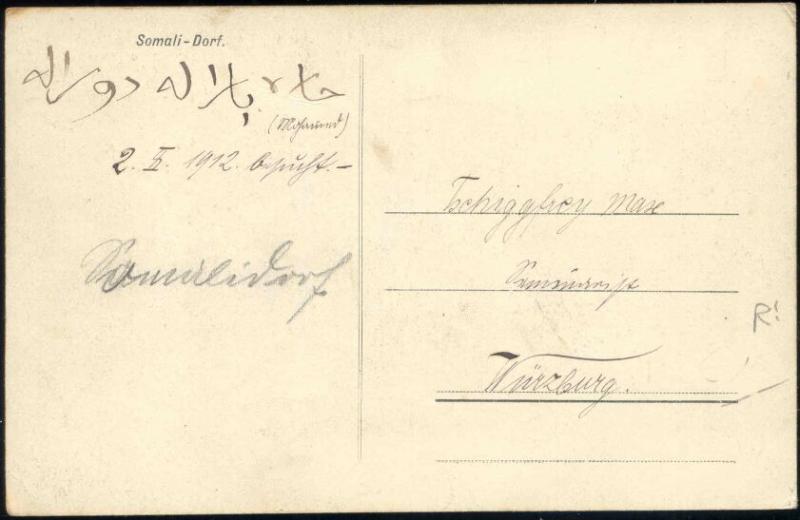 Somali-Dorf.
(Mohamed)
2. X. 1912. besucht.-
Somalidorf
Tschiggfrey Max
Seminarist
Würzburg.
R!